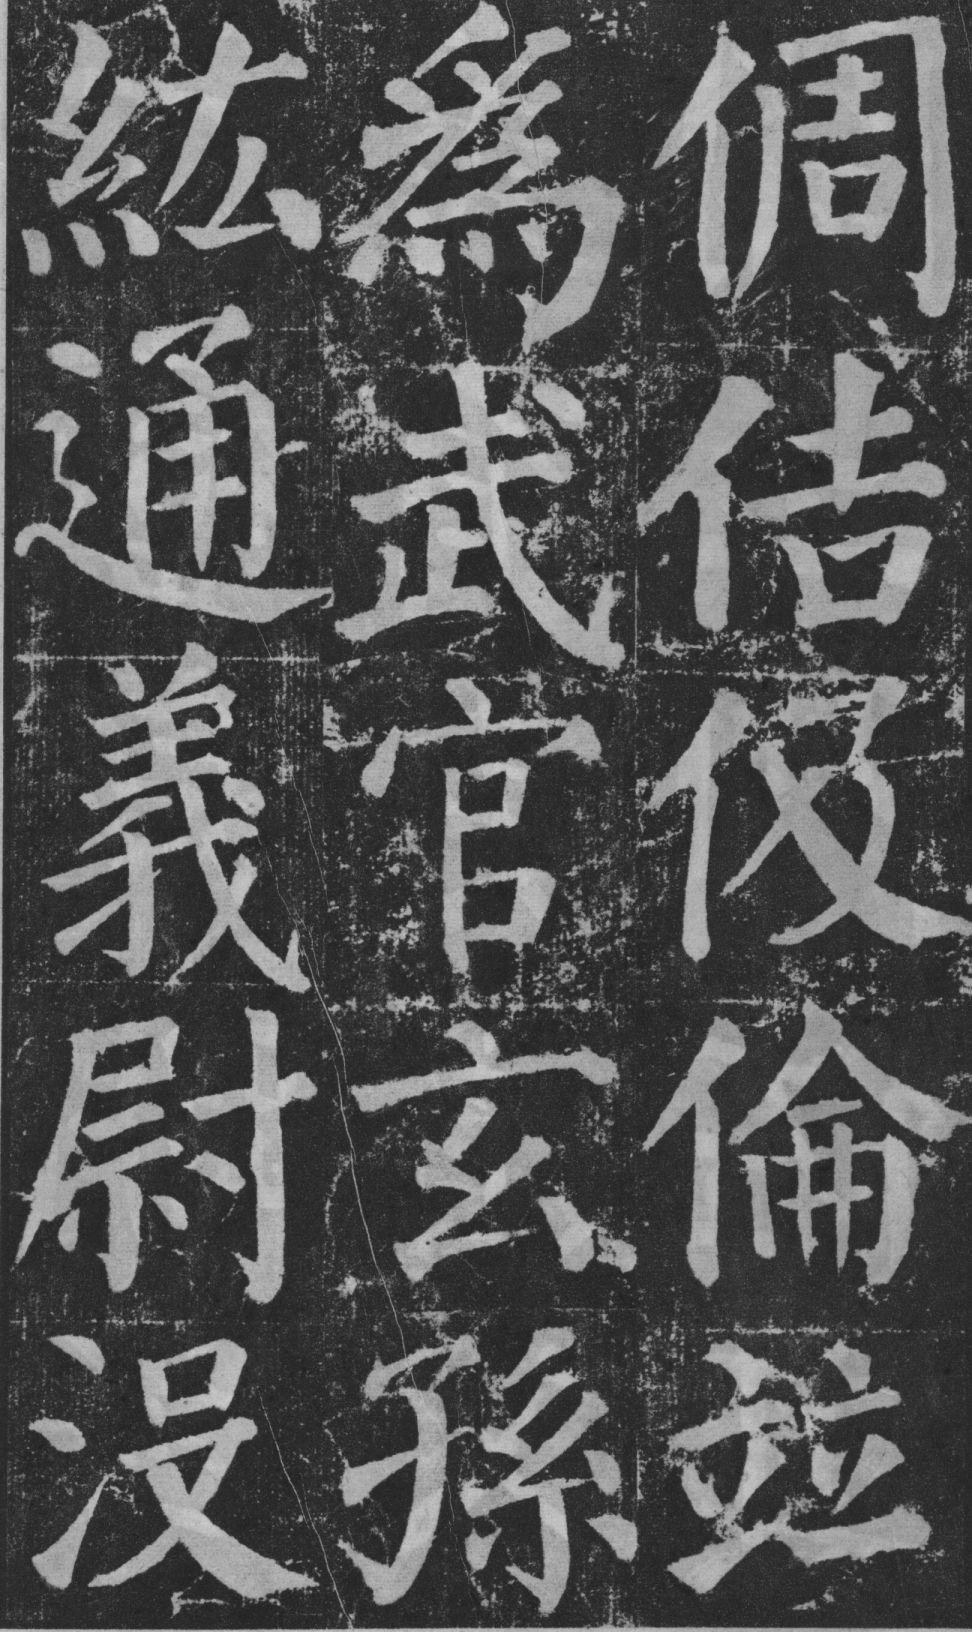 倜佶伋倫並
爲武官玄孫
紘通義尉沒